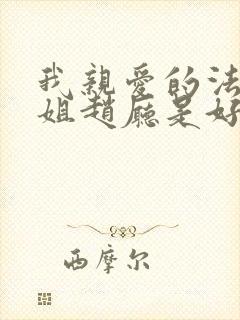 我親愛的法
姐趙廳是好
西摩尔